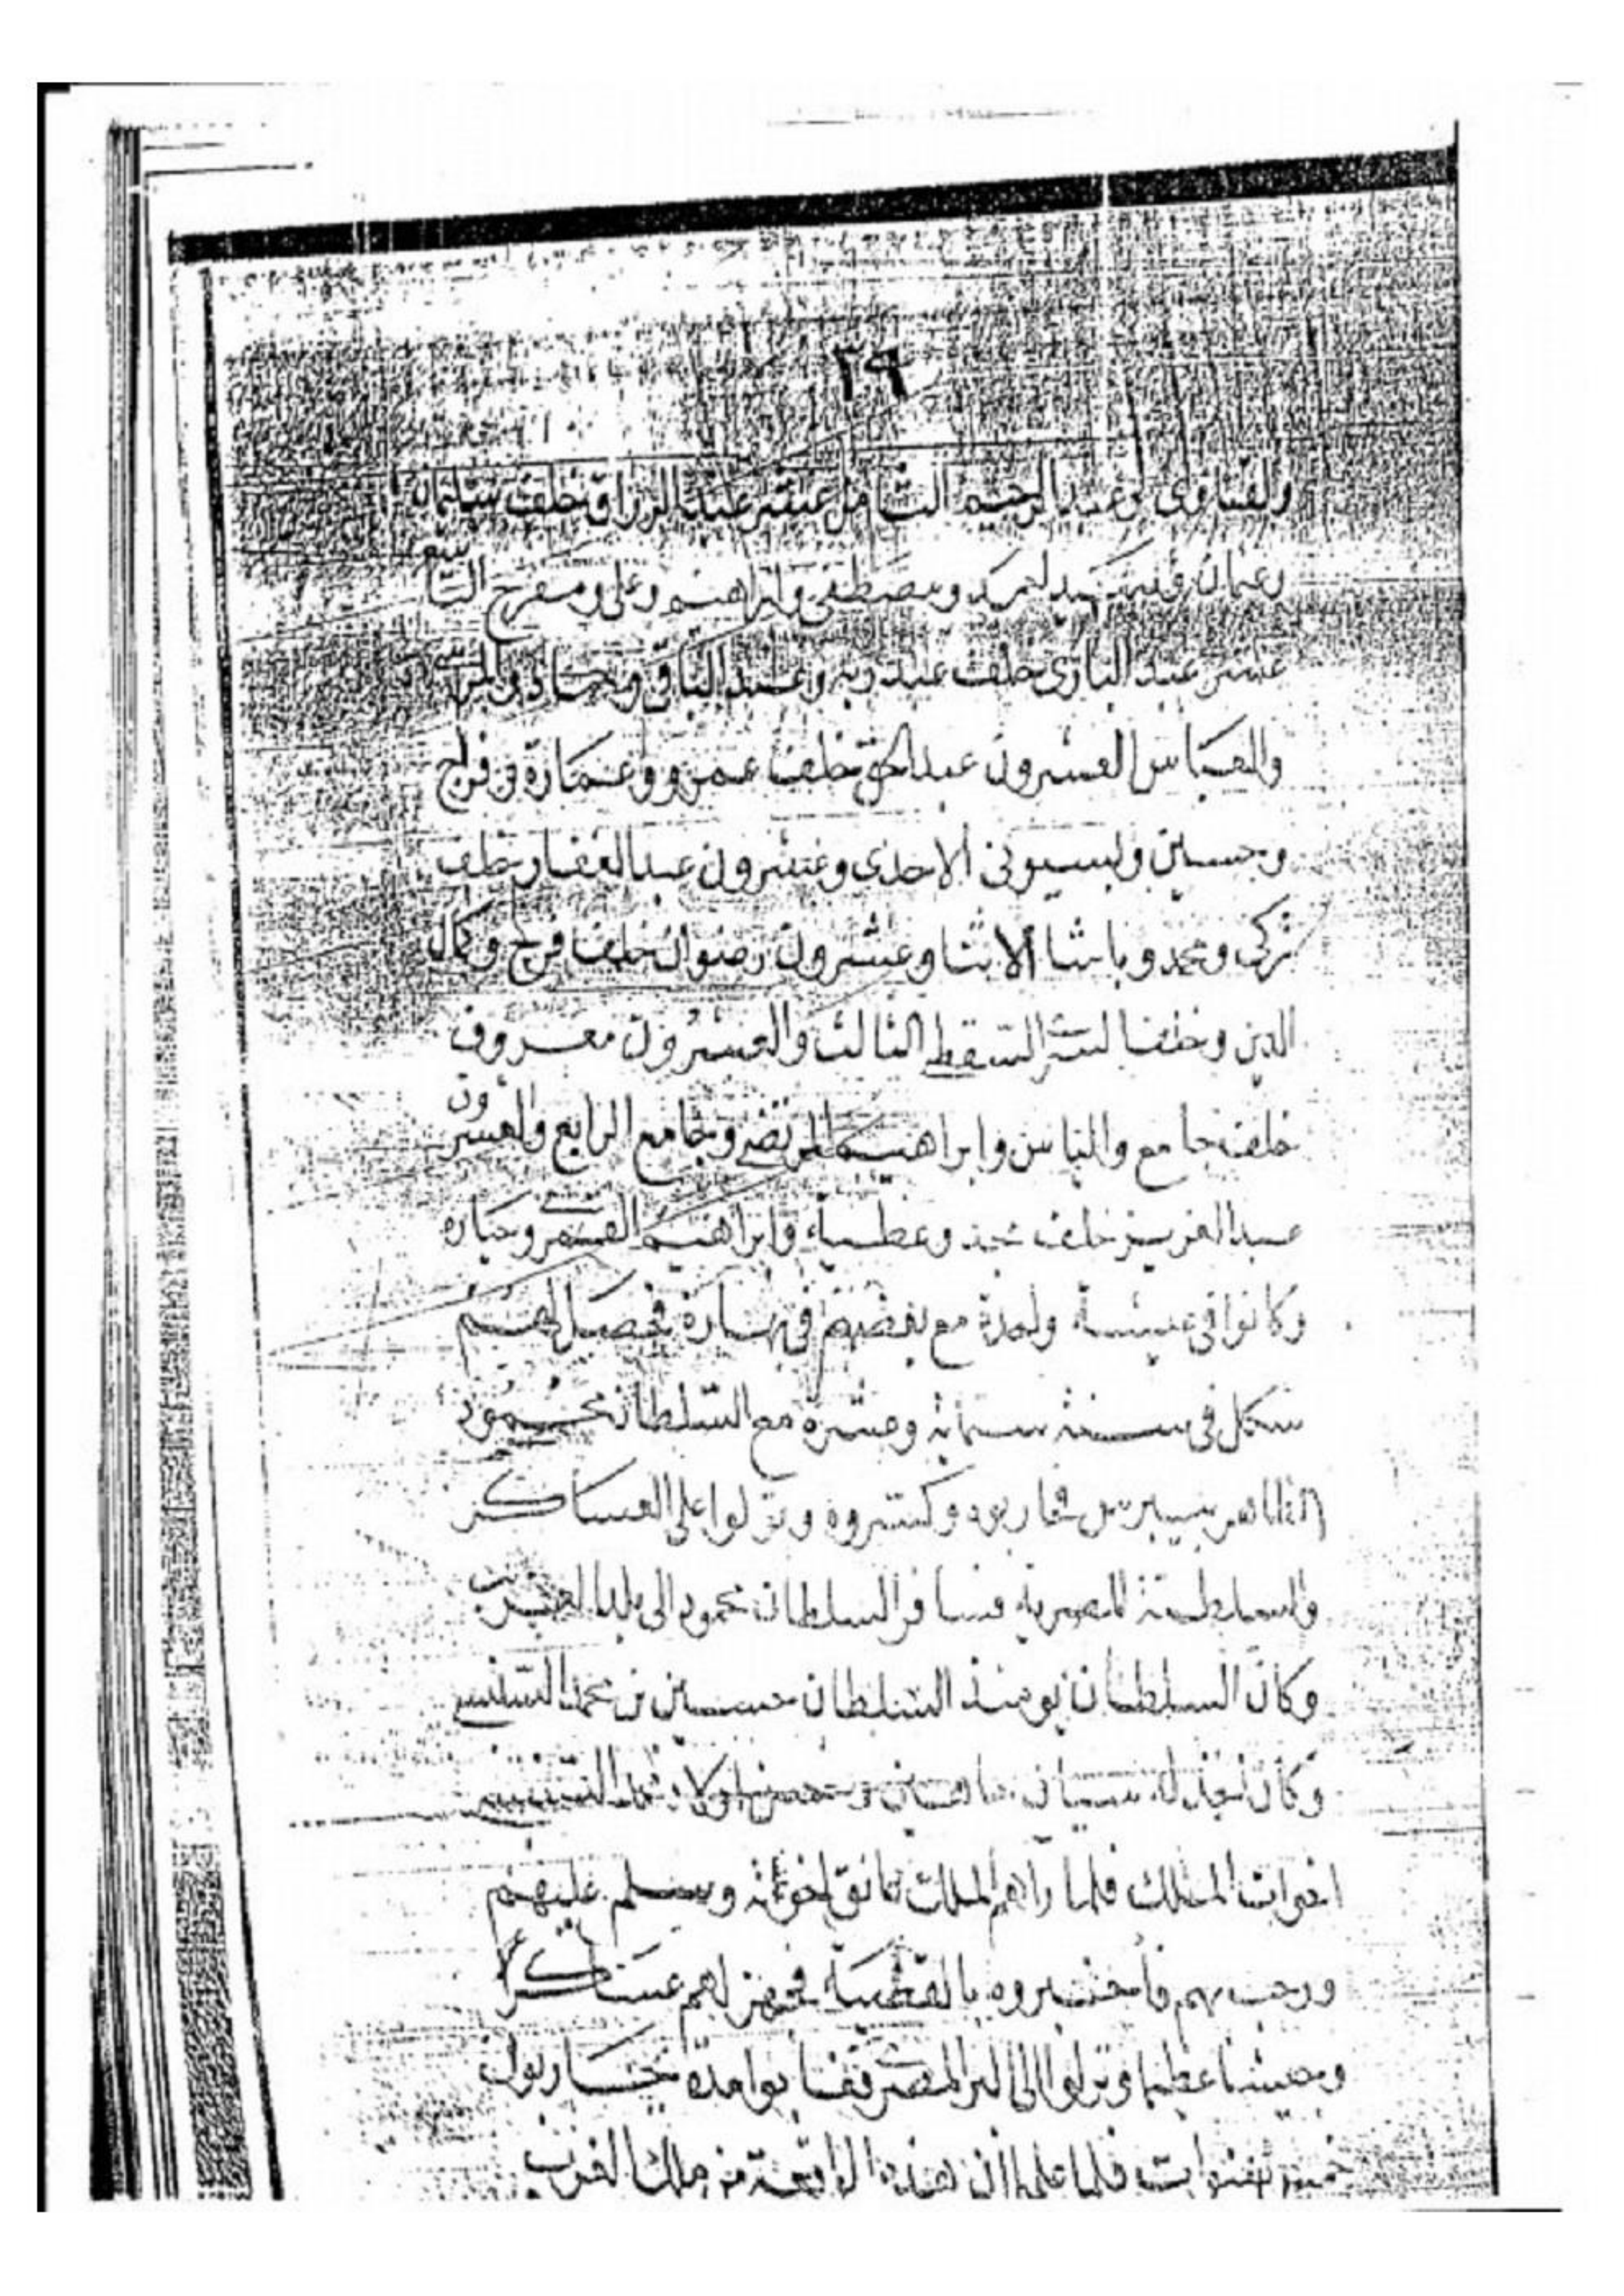 ٢٩
والفناوى وعبد الرحيم الثامن عشر عبد الرزاق خلف سليمان
وعثمان ومصطفى وابراهيم وعلى ومفرح التاسع
عشر عبد البارى خلف عبد ربه وعبد الباقى
والعباس العشرون عبد الحق خلف عمرو وعمارة وفراج
وحسين وبسيونى الاحدى وعشرون عبد الغفار خلف
تركى ومحمد وباشا الاثنا وعشرون رضوان خلف فراج وكمال
الدين وخلفا الثالث والعشرون معروف
خلف جامع والياس وابراهيم المرتضى وجامع الرابع والعشرون
عبد العزيز خلف محمد وعطية وابراهيم وحباره
وكانوا فى عيشة واحدة مع بعضهم فى فحصل لهم
شكل فى سنة ستمائة وعشرة مع السلطان محمود
الظاهر بيبرس فحاربوه وكسروه ونزلوا على العساكر
والسلطنة المصرية فسافر السلطان محمود الى بلد الغرب
وكان السلطان يومئذ السلطان حسين بن محمد السنسى
وكان اولاد محمد السنسى
اخوات الملك فلما رآهم الملك اخوته وسلم عليهم
ورحب بهم فأخبروه بالقضية فجهز لهم عساكرا
وجيشا عظيما ونزلوا الى البر المصر مدة يحاربون
خمس سنوات فلما علموا ان هذه الواقعة من ملك الغرب